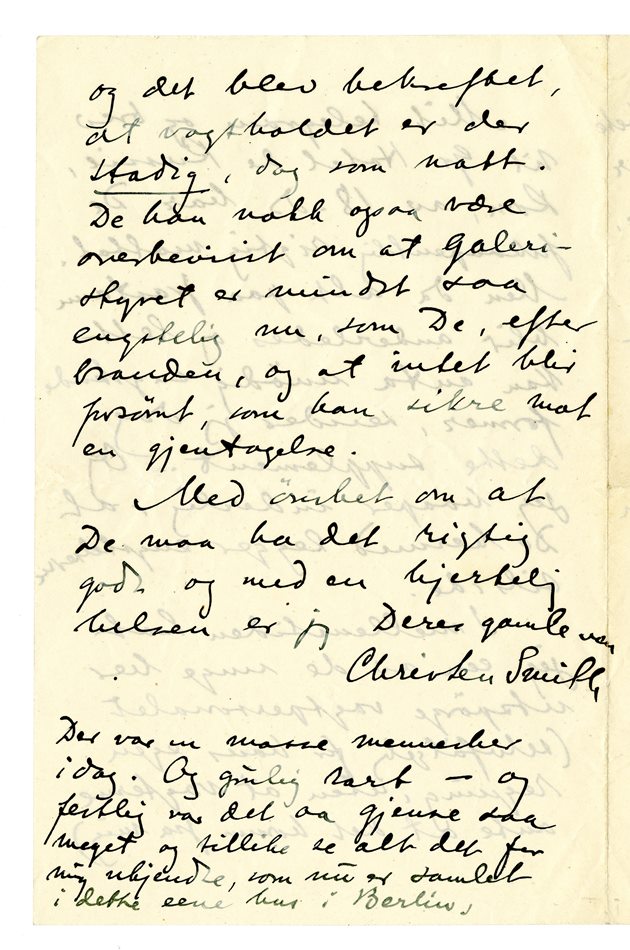 og det blev bekreftet,
at vagtholdet er der
stadig, dag som natt.
De kan nokk ogsaa være
overbevisst om at Galeri-
styret er mindst saa
engstelig nu, som De, efter
branden, og at intet blir
forsømt, som kan sikre mot
en gjentagelse.
Med ønsket om at
De maa ha det rigtig
godt og med en hjertelig
hilsen er jeg Deres gamle ven
Christen Smith
Der var en masse mennesker
idag. Og grulig rart – og
festlig var det aa gjense saa
meget og tillike se alt det for
mig ukjendte, som nu er samlet
i dette eene hus i Berlin.